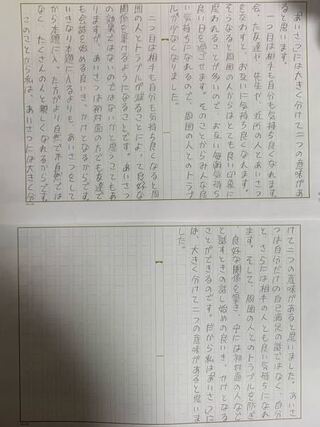 あいさつには大きく分けて二つの意味があ
ると思います。
一つ目は相手も自分も気持ち良くなれます。
会った友達や、先生や、近所の人とあいさつ
をかわすと、お互いに気持ち良くなれます。
そうなると周囲の人からはとても良い印象に
思われることが多いので、お互い毎回気持ち
良い日を過ごせます。そのことからみんな良
い気持ちになれるので、周囲の人とのトラブ
ルが少なくなりました。
二つ目は相手も自分も気持ち良くなると周
囲の人とトラブルが減ることによって良好な
関係が築けるようになることです。あいさつ
の効果ではないのではないかと思うこともあ
りますが、あいさつは初対面の方でも友達で
も会話を始める良いきっかけになるからです。
いきなり本題に入るよりも、あいさつをして
から本題に入った方がより自然で不自然では
なく、たくさんの人と親しくなれるからです。
このことから私は、あいさつには大きく分
けて二つの意味があると思いました。あいさ
つは自分だけの自己満足の話ではなく、自分
と、さらには相手の人とも良い気持ちになれ
ます。そして、周囲の人とのトラブルを防ぎ
良好な関係を築き、中には初対面の人などと
話すときの話し始めの良いきっかけとなる
ことができるのです。だから私はあいさつに
は、大きく分けて二つの意味があると思いま
した。